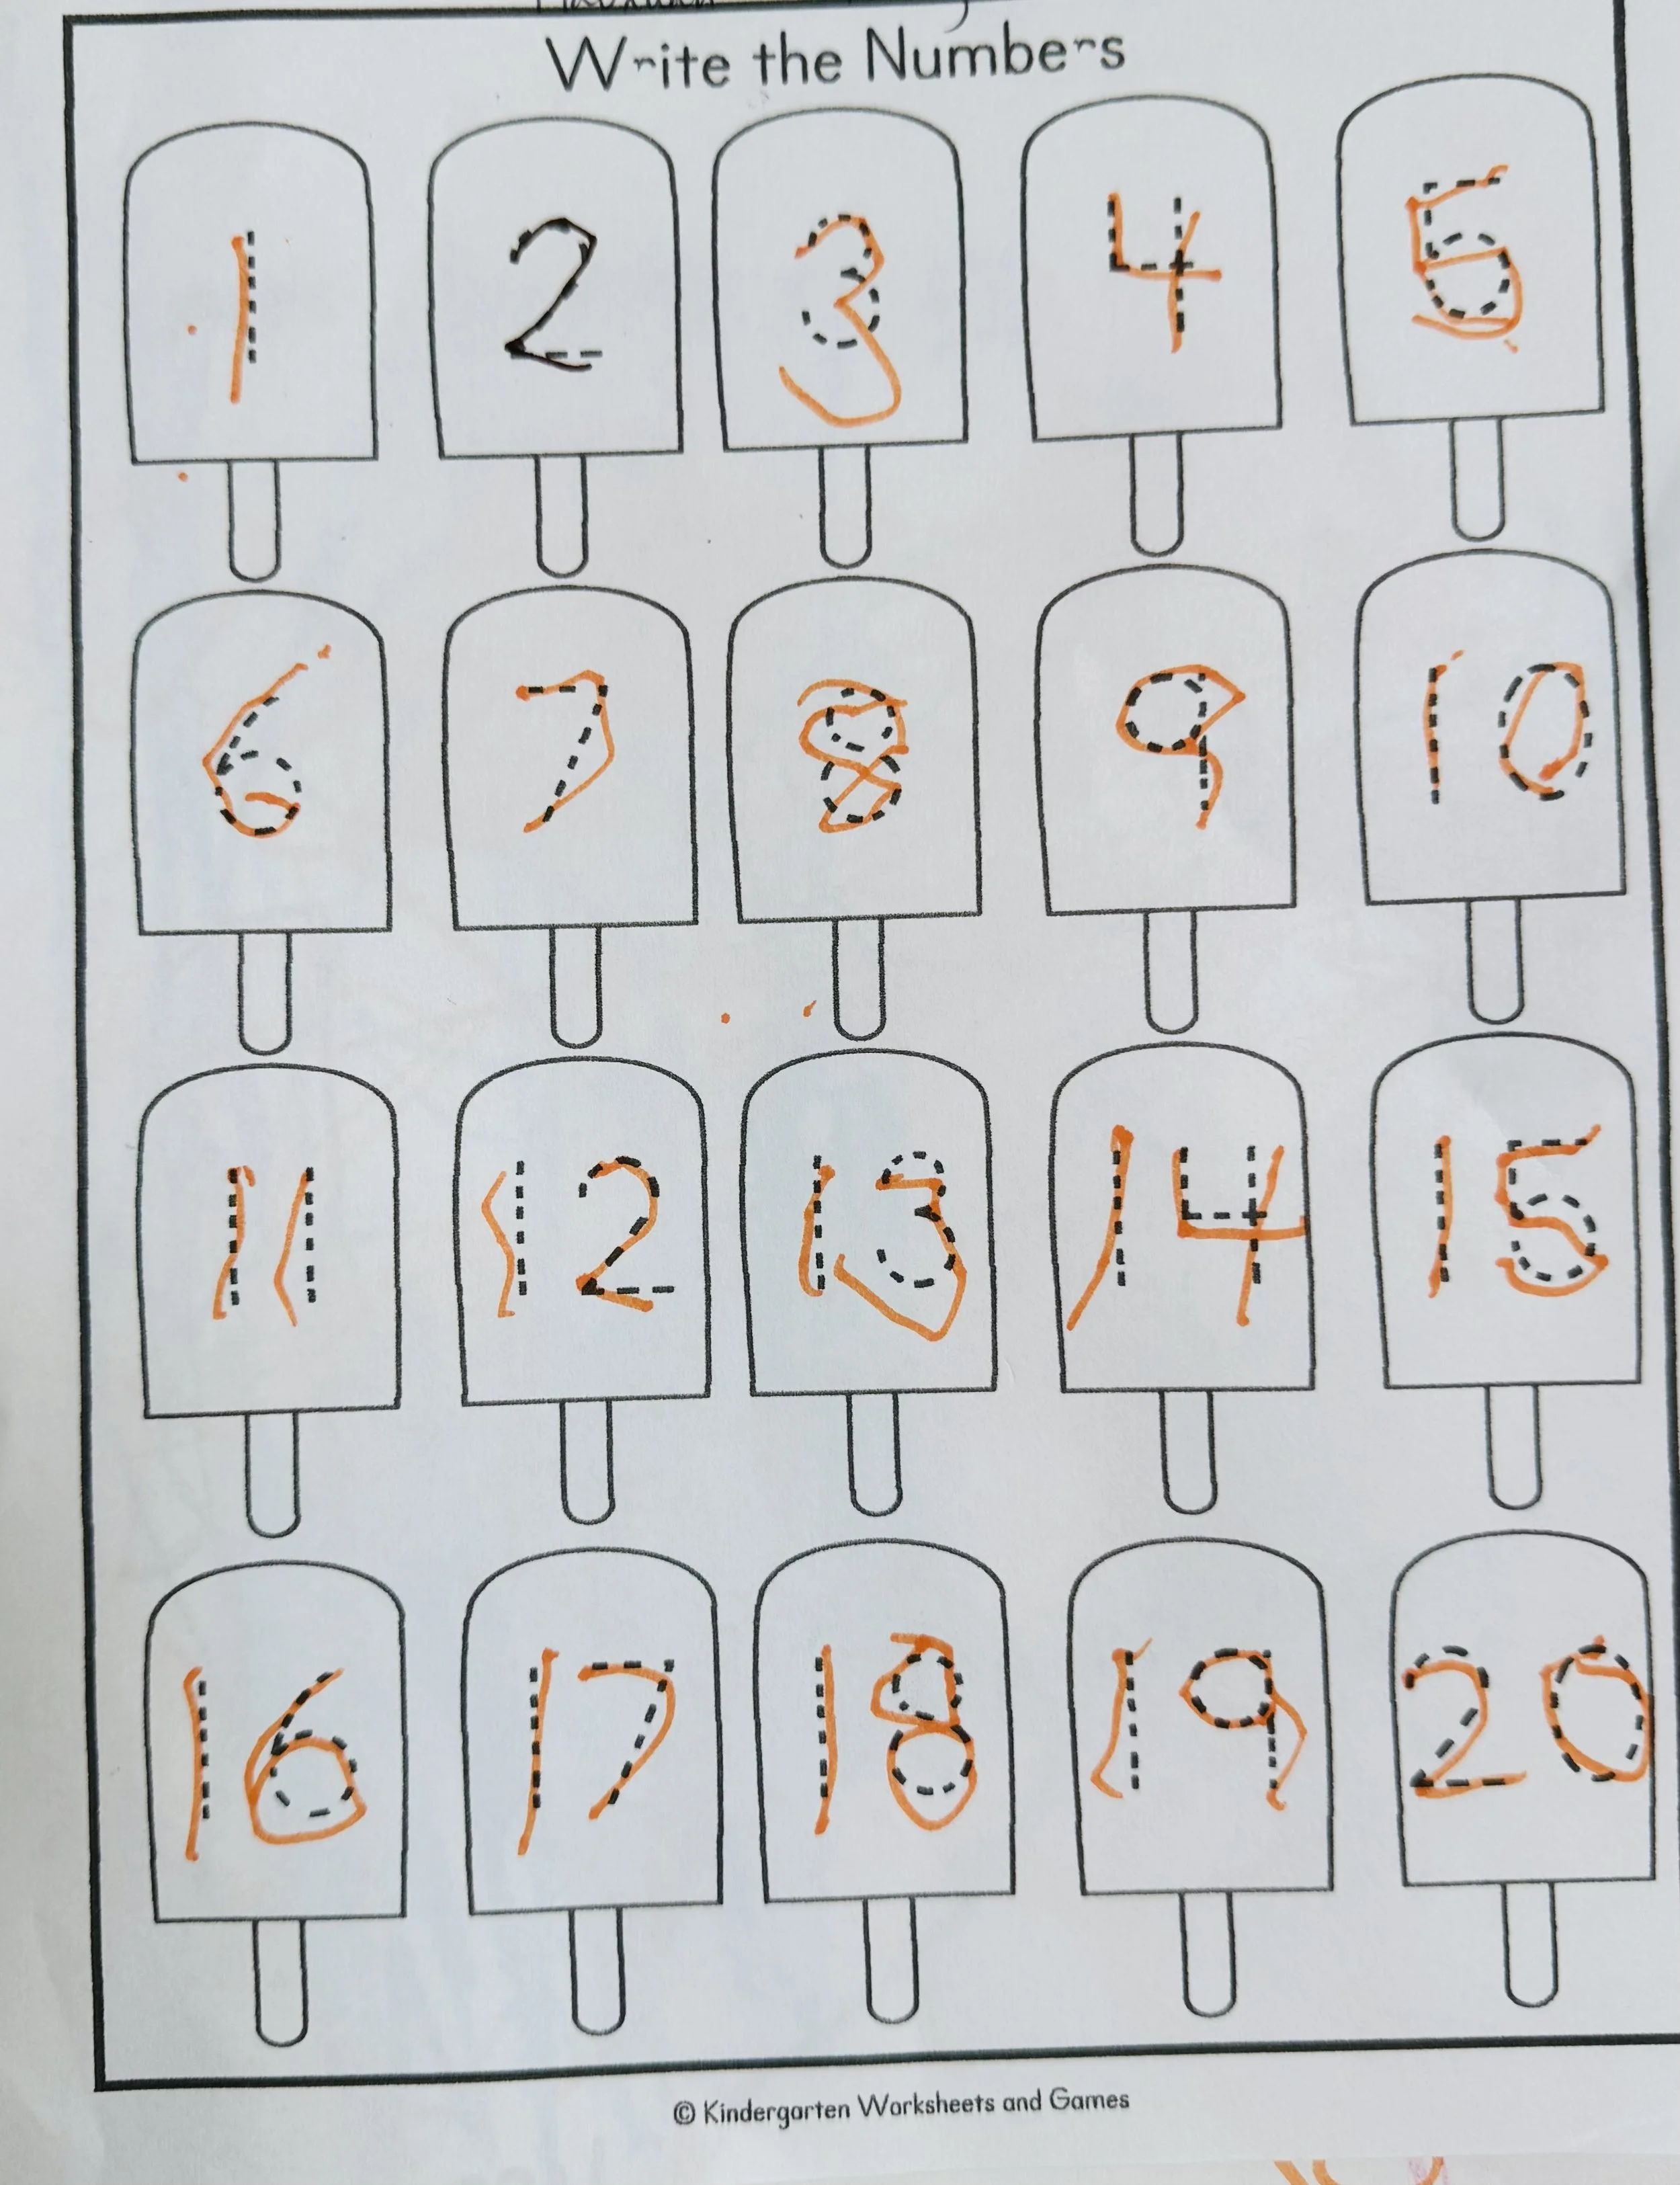 Write the Numbers
1 2 3 4 5
6 7 8 9 10
11 12 13 14 15
16 17 18 19 20
© Kindergarten Worksheets and Games